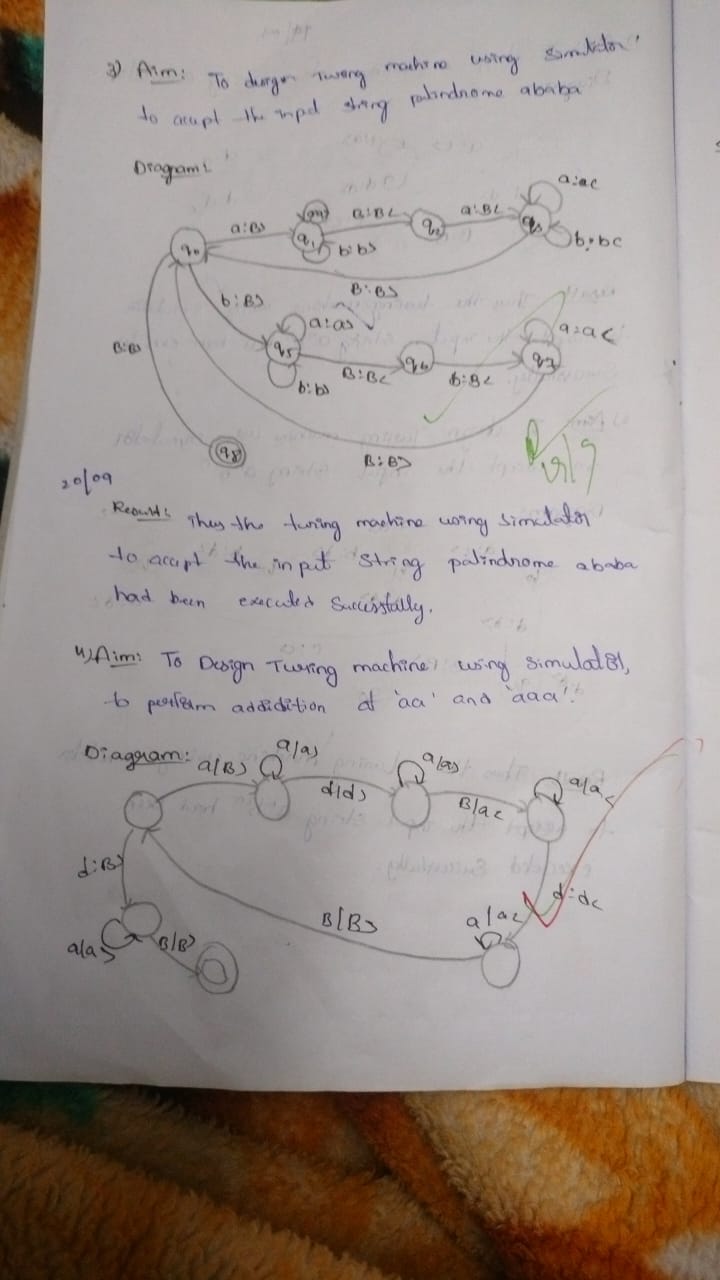 3) Aim: To design Turing machine using simulator
to accept the input string palindrome ababa
Diagram:
a:ac
a:B>
a:B<
a:B<
q0
q1
q2
q3
b:b>
b:bc
B:B>
b:B>
a:a>
a:a<
B:B>
q5
B:B<
q6
b:B<
q7
b:b>
q8
B:B>
20/09
Result: Thus the turing machine using simulator
to accept the input string palindrome ababa
had been executed successfully.
4) Aim: To Design Turing machine using simulator,
to perform addidition of 'aa' and 'aaa'.
Diagram:
a/B>
a/a>
a/a>
a/a<
d/d>
B/a<
d:B>
d:d<
B/B>
a/a<
a/a>
B/B>